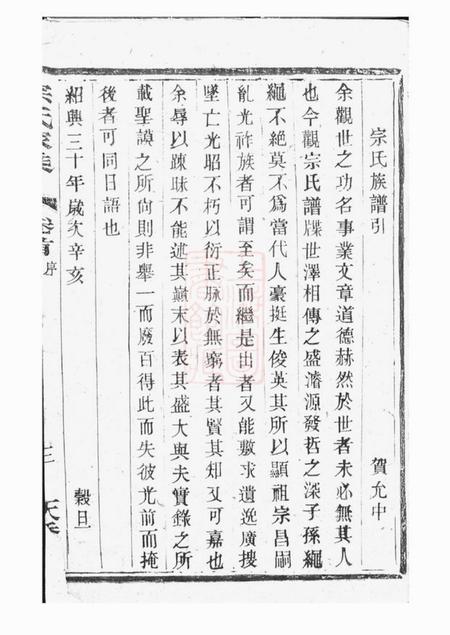 宗氏族譜引
賀允中
余觀世之功名事業文章道德赫然於世者未必無其人
也今觀宗氏譜牒世澤相傳之盛濬源發哲之深子孫繩
繩不絕莫不爲當代人豪挺生俊英其所以顯祖宗昌嗣
胤光祚族者可謂至矣而繼是出者又能數求遺逸廣搜
墜亡光昭不朽以衍正脉於無窮者其賢其却又可嘉也
余辱以踈昧不能述其巔末以表其盛大與夫實錄之所
載聖謨之所向則非舉一而廢百得此而失彼光前而掩
後者可同日語也
紹興三十年歲次辛亥
穀旦
宗氏家集
卷首
序
三